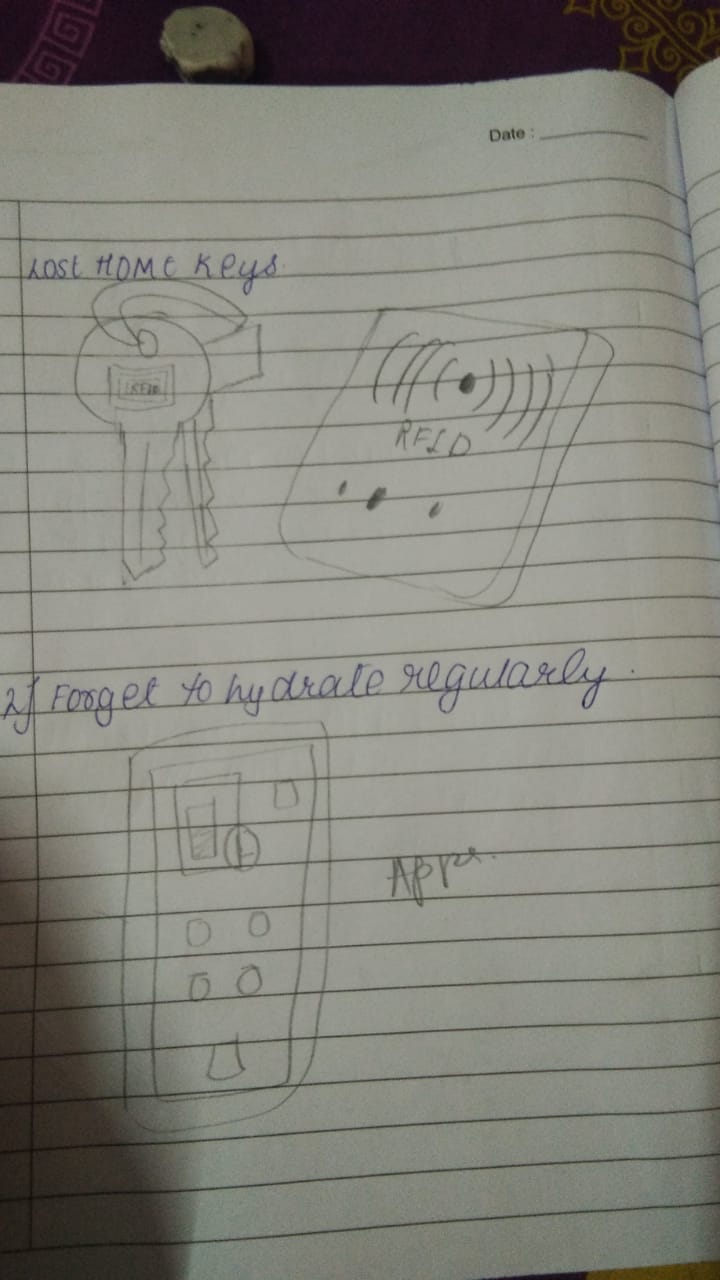 Date :
Lost HOME Keys.
RFID
RFID
2) Forget to hydrate regularly.
Apps.